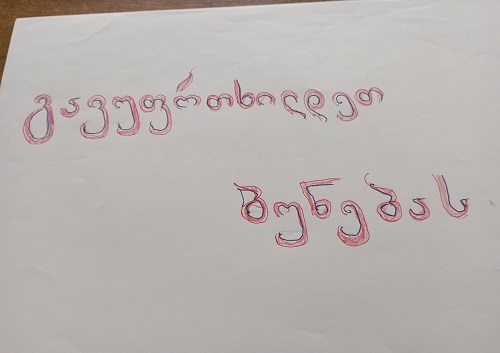 გავუფრთხილდეთ
ბუნებას